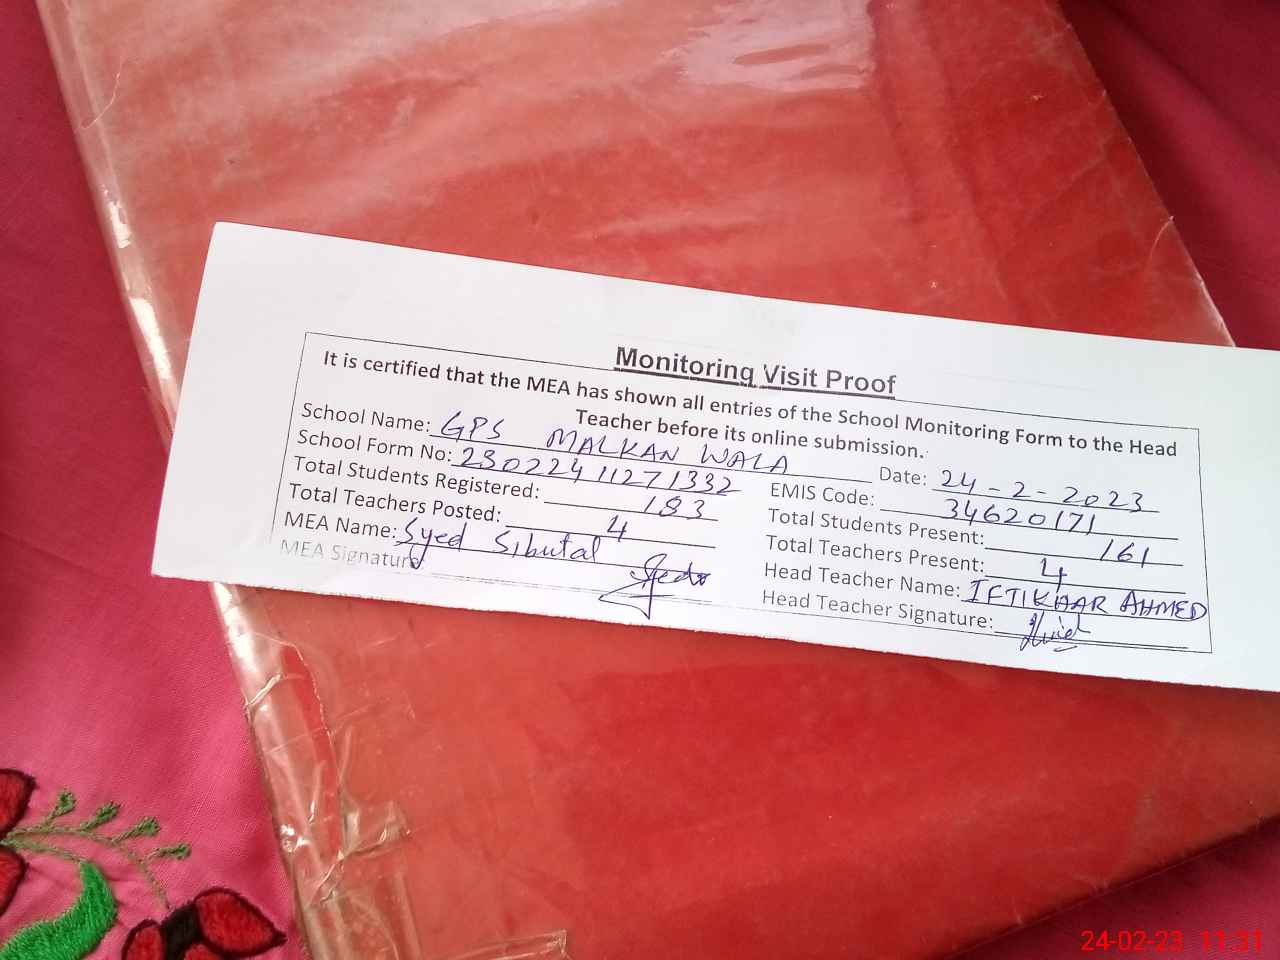 Monitoring Visit Proof
It is certified that the MEA has shown all entries of the School Monitoring Form to the Head
Teacher before its online submission.
School Name: GPS MALKAN WALA Date: 24-2-2023
School Form No: 23022411271332 EMIS Code: 34620171
Total Students Registered: 183 Total Students Present: 161
Total Teachers Posted: 4 Total Teachers Present: 4
MEA Name: Syed Sibutal Head Teacher Name: IFTIKHAR AHMED
MEA Signature: Head Teacher Signature:
24-02-23 11:31